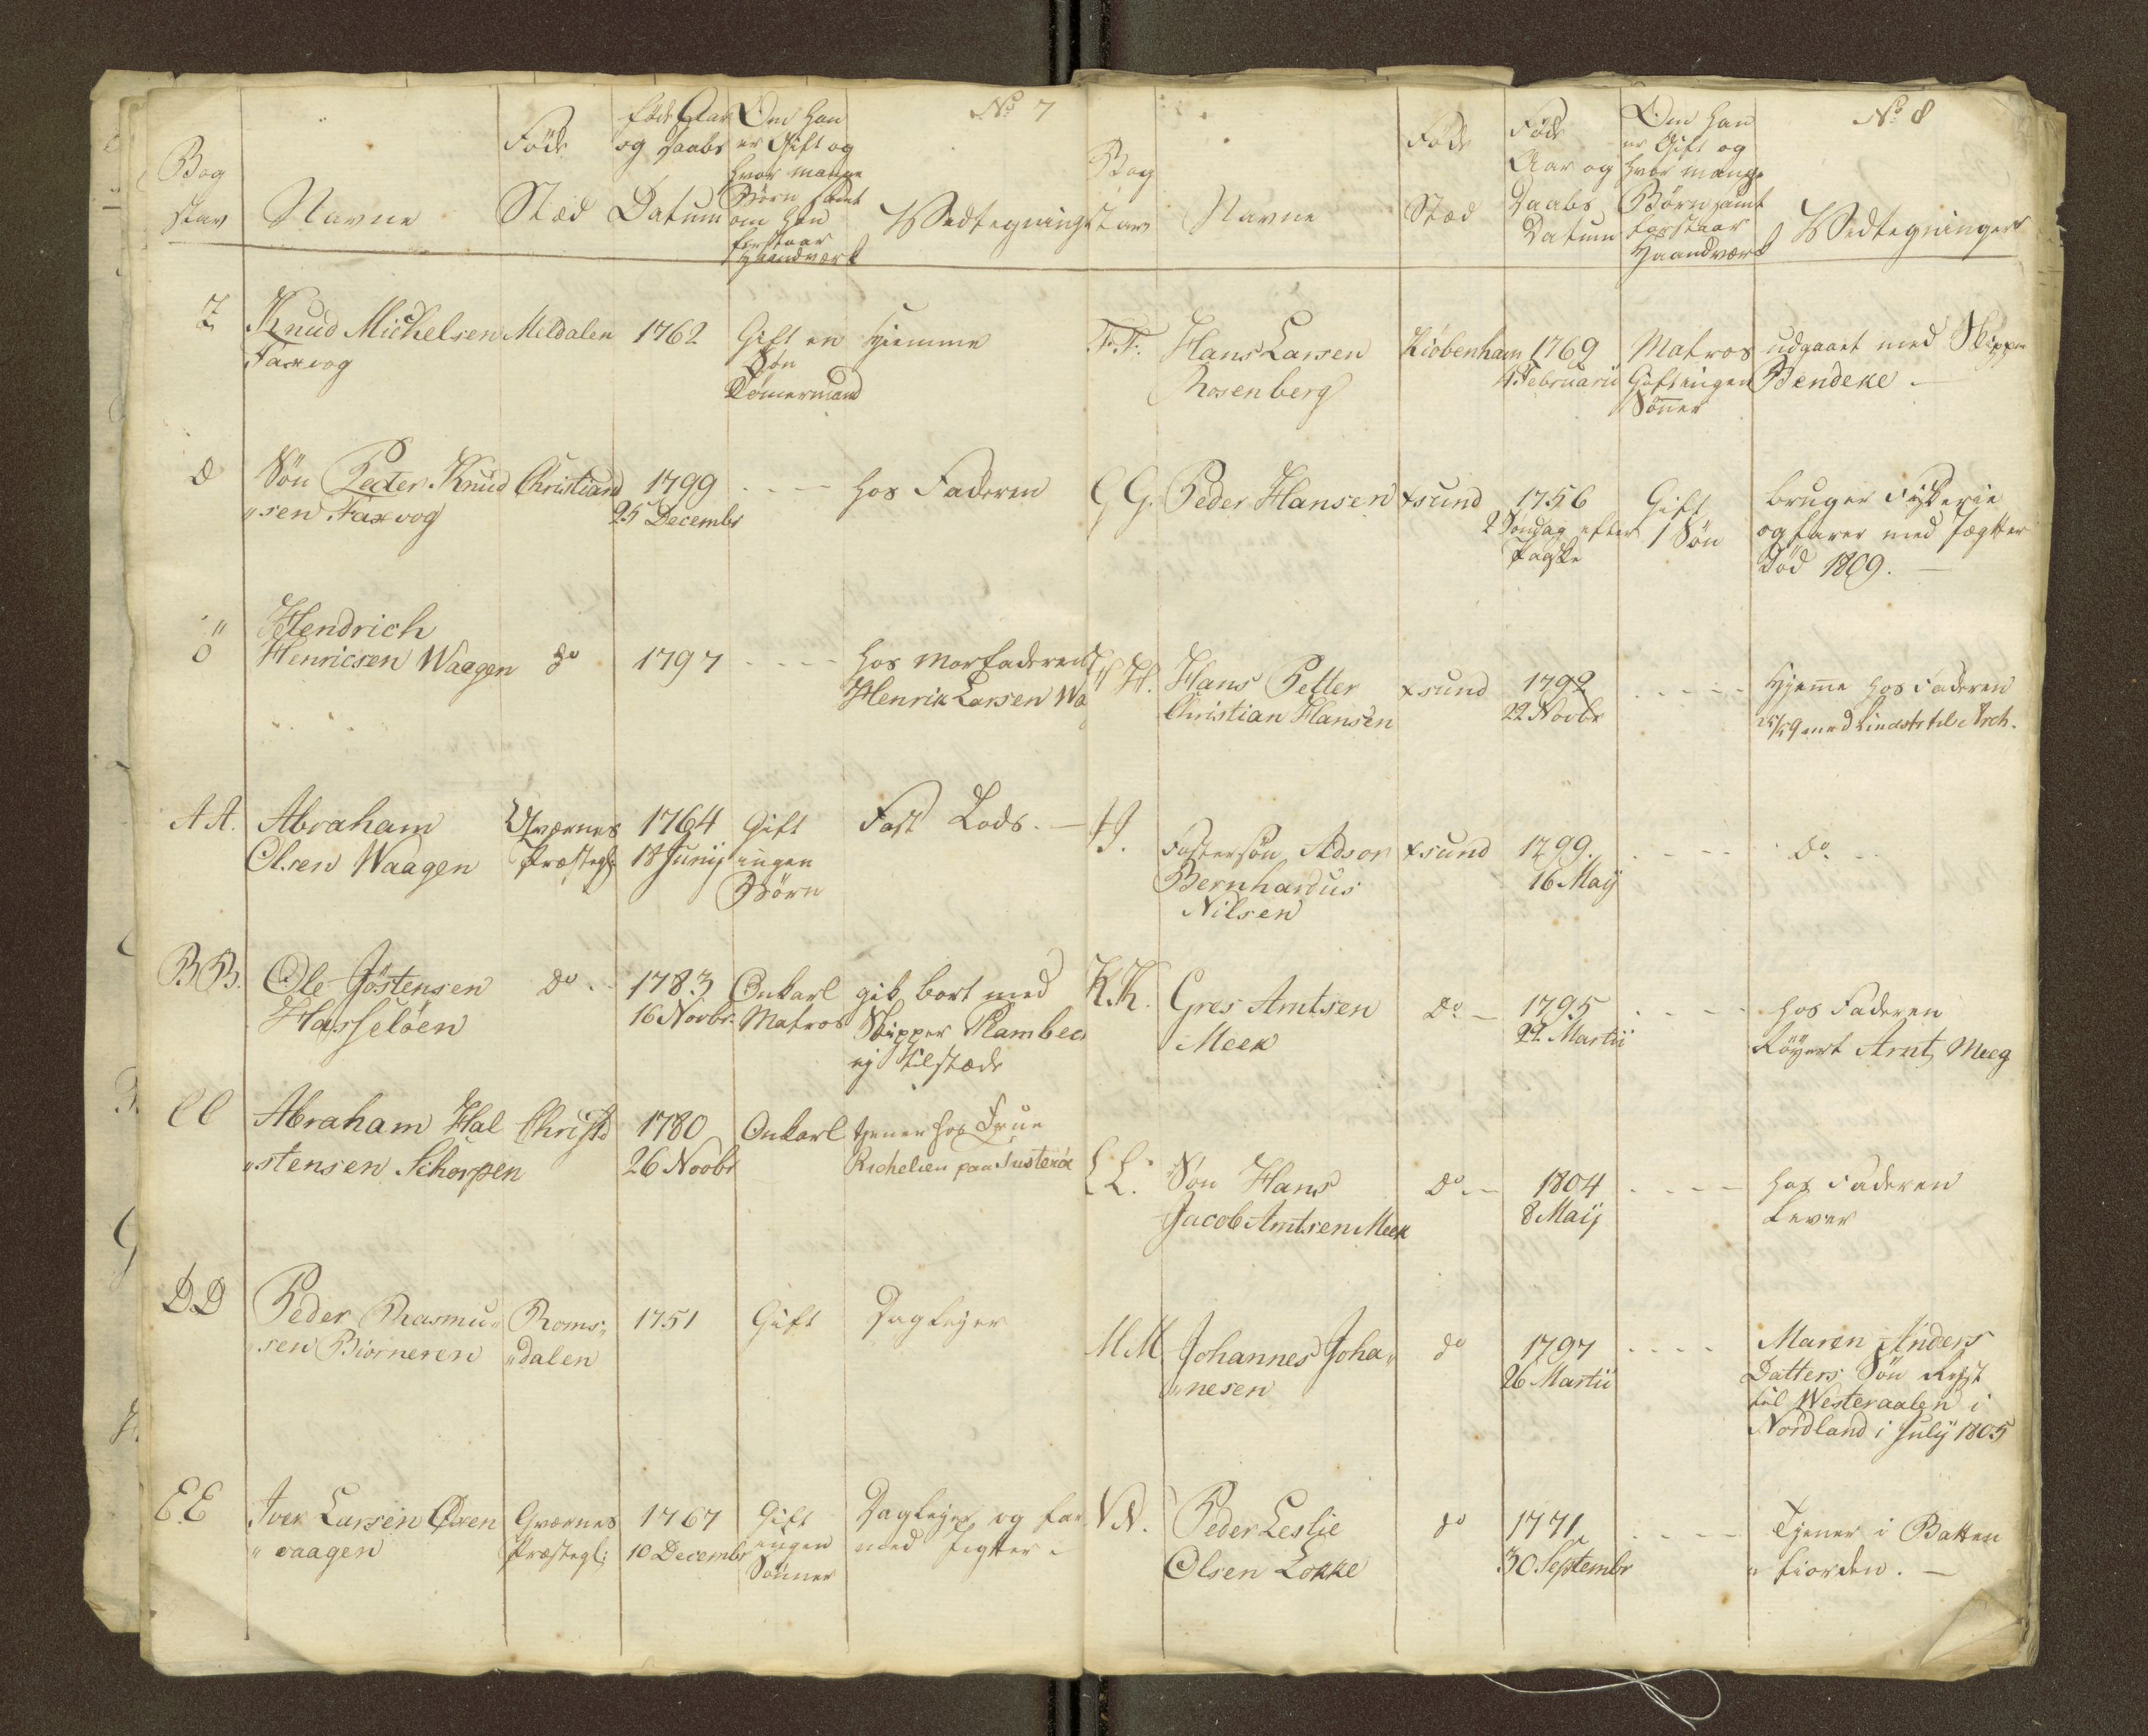 No 7
Bog
stav
Navne
Föde
Stæd
Föde Aar
og Daabs
Datum
Om han
er Gift og
hvor mange
Börn samt
om han
forstaar
Haandværk
Vedtegning
Z
Knud Michelsen
Faxvog
Meldalen
1762
Gift en
Søn
Tömermand
Hjemme
Søn Peder Knud
"sen Faxvog
Christiand
1799
25 Decembr
hos Faderen
Ö
Hendrich
Henricsen Waagen
do
1797
hos Morfaderen
Henrik Larsen Wa
AA.
Abraham
Olsen Waagen
Qværnes
Præstegl
1764
18 Junij
Gift
ingen
Börn
Fast Lods.
BB.
Ole Jöstensen
Hasselöen
do
1783
16 Novbr.
Enkarl
Matros
gik bort med
Skipper Rambec
ej tilstæde
CC
Abraham Hal
"stensen Schorpen
Christd
1780
26 Novbr
Enkarl
tjener hos Frue
Richelieu paa Tusterøe
DD
Peder Rasmu"
"sen Biörneren
Roms"
"dalen
1751
Gift
Daglejer
EE
Iver Larsen Øren
"vaagen
Qværnes
Præstegl:
1767
10 Decembr
Gift
ingen
Sönner
Daglejer og far
med Jegtter
No 8
Bog
stav
Navne
Föde
Stæd
Föde
Aar og
Daabs
Datum
Om han
er Gift og
hvor mange
Börn samt
forstaar
Haandværk
Vedtegninger
FF.
Hans Larsen
Rosenberg
Kiöbenham
1769
4 Februarii
Matros
Gift ingen
Sönner
udgaaet med Skipper
Bendeke
GG.
Peder Hansen
xsund
1756
2 Söndag efter
Paaske
Gift
1 Sön
bruger Fiskerie
og farer med Jægtter
Död 1809.
HH.
Hans Petter
Christian Hansen
xsund
1792
22 Novbr
Hjeme hos Faderen
JJ.
Fostersön Adson
Bernhardus
Nilsen
xsund
1799.
16 Maij
do
KK.
Gres Arntsen
Meek
do
1795
22 Martii
hos Faderen
Röyert Arnt Meeg
LL.
Sön Hans
Jacob Arntsen Meek
do
1804
8 Maij
hos Faderen
Lever
MM
Johannes Joha"
"nesen
do
1797
26 Martii
Maren Anders
Datters Sön Rejst
til Westeraalen i
Nordland i July 1805
NN.
Peder Leslie
Olsen Lokke
do
1771
30 Septembr
Tjener i Batten
"fiorden.